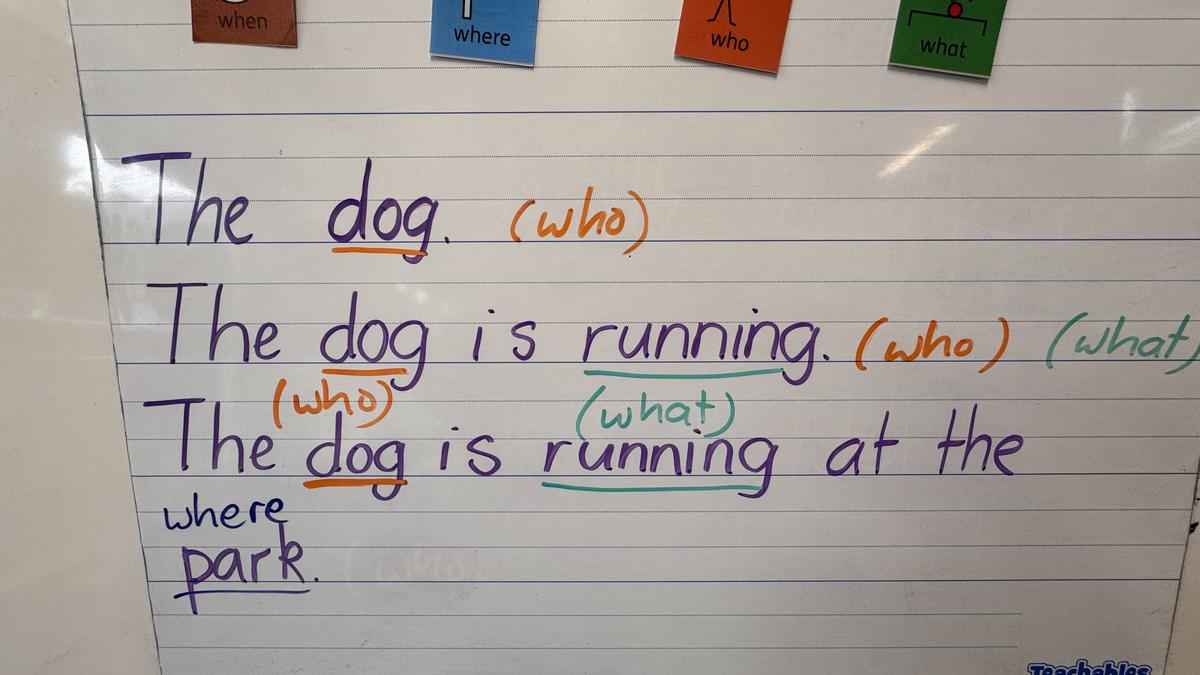 when where who what
The dog. (who)
The dog is running. (who) (what)
(who) (what)
The dog is running at the
where
park.
Teachables